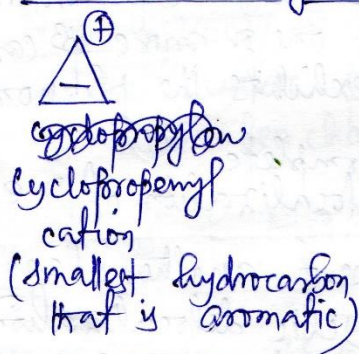 ⊕
cyclopropenyl
cation
(smallest hydrocarbon
that is aromatic)